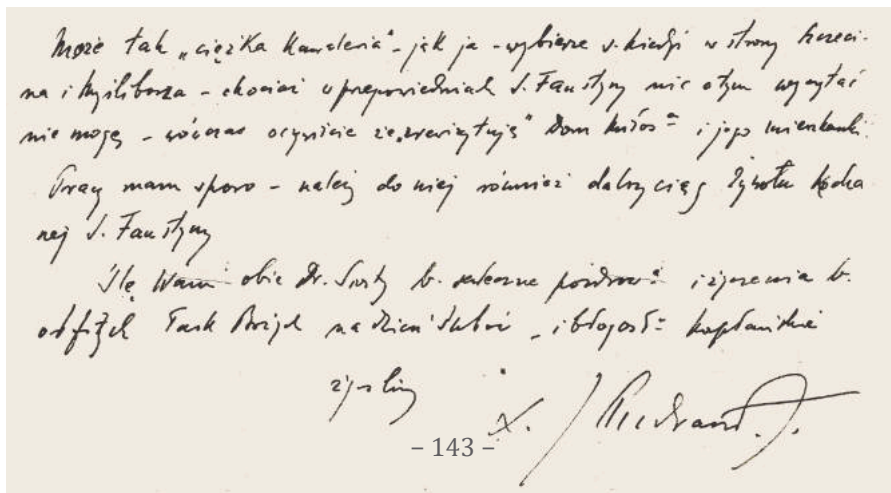 Może tak „ciężka kawaleria" – jak ja – wybierze s. kiedyś w strony Szczeci-
na i Myśliborza – chociaż w przepowiedniach S. Faustyny nic o tym wyczytać
nie mogę – wówczas oczywiście że „zrewizytuję" Dom Miłos= i jego mieszkanki.
Pracy mam sporo – należy do niej również dalszy ciąg Żywotu kocha
nej S. Faustyny
Ślę Wam obie Dr. Siostry b. serdeczne pozdrow= i życzenia b.
obfitych Łask Bożych na dzień ślubów – i błogosł= kapłańskie
życzliwy
X. J
– 143 –